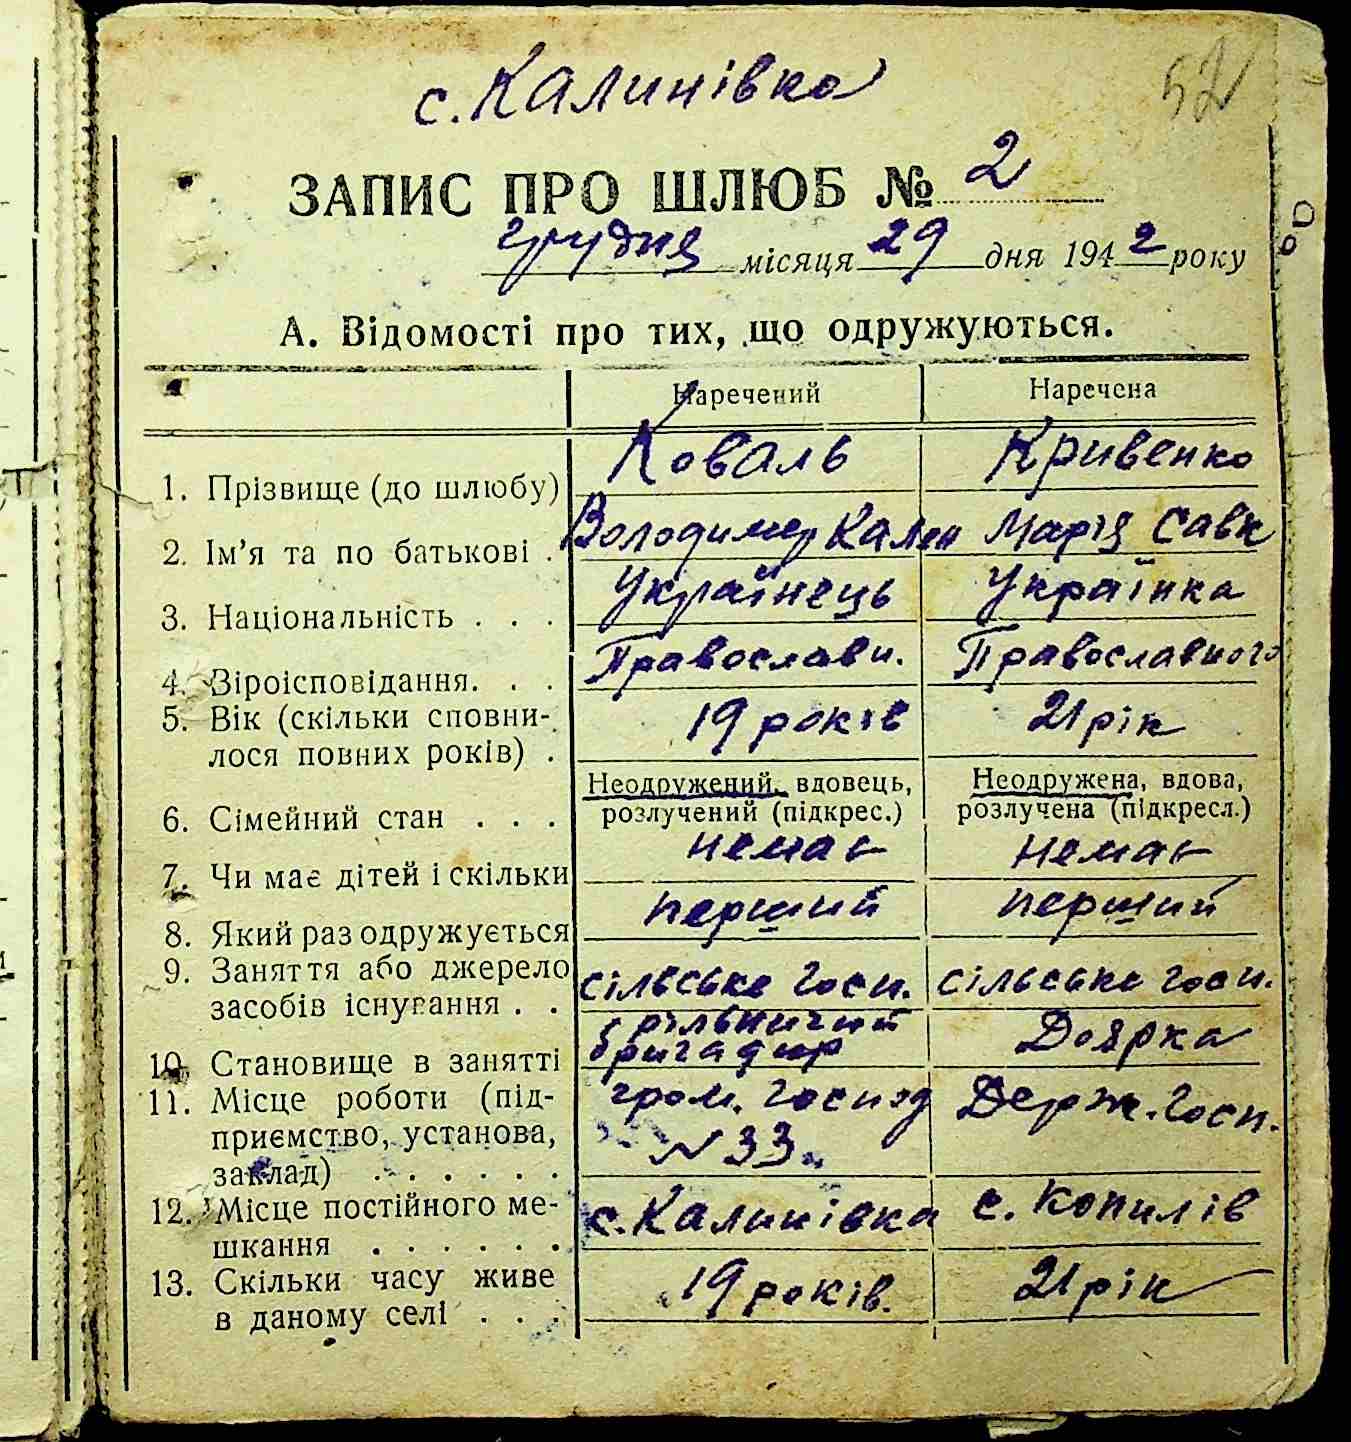 с. Калинівка
52
ЗАПИС ПРО ШЛЮБ № 2
грудня місяця 29 дня 1942 року
А. Відомості про тих, що одружуються.
Наречений Наречена
1. Прізвище (до шлюбу) Коваль Кривенко
2. Ім'я та по батькові . Володимер Кален Марія Савк
3. Національність . . . Українець Українка
4. Віроісповідання. . . Православн. Православного
5. Вік (скільки сповни-
лося повних років) . 19 років 21 рік
6. Сімейний стан . . . Неодружений, вдовець, розлучений (підкрес.) Неодружена, вдова, розлучена (підкресл.)
7. Чи має дітей і скільки немає немає
8. Який раз одружується перший перший
9. Заняття або джерело
засобів існування . . сільське госп. сільське госп.
10. Становище в занятті рільничий бригадир Доярка
11. Місце роботи (під-
приємство, установа,
заклад) . . . . . . гром. господ № 33. Держ. госп.
12. Місце постійного ме-
шкання . . . . . . с. Калинівка с. Копилів
13. Скільки часу живе
в даному селі . . . 19 років. 21 рік